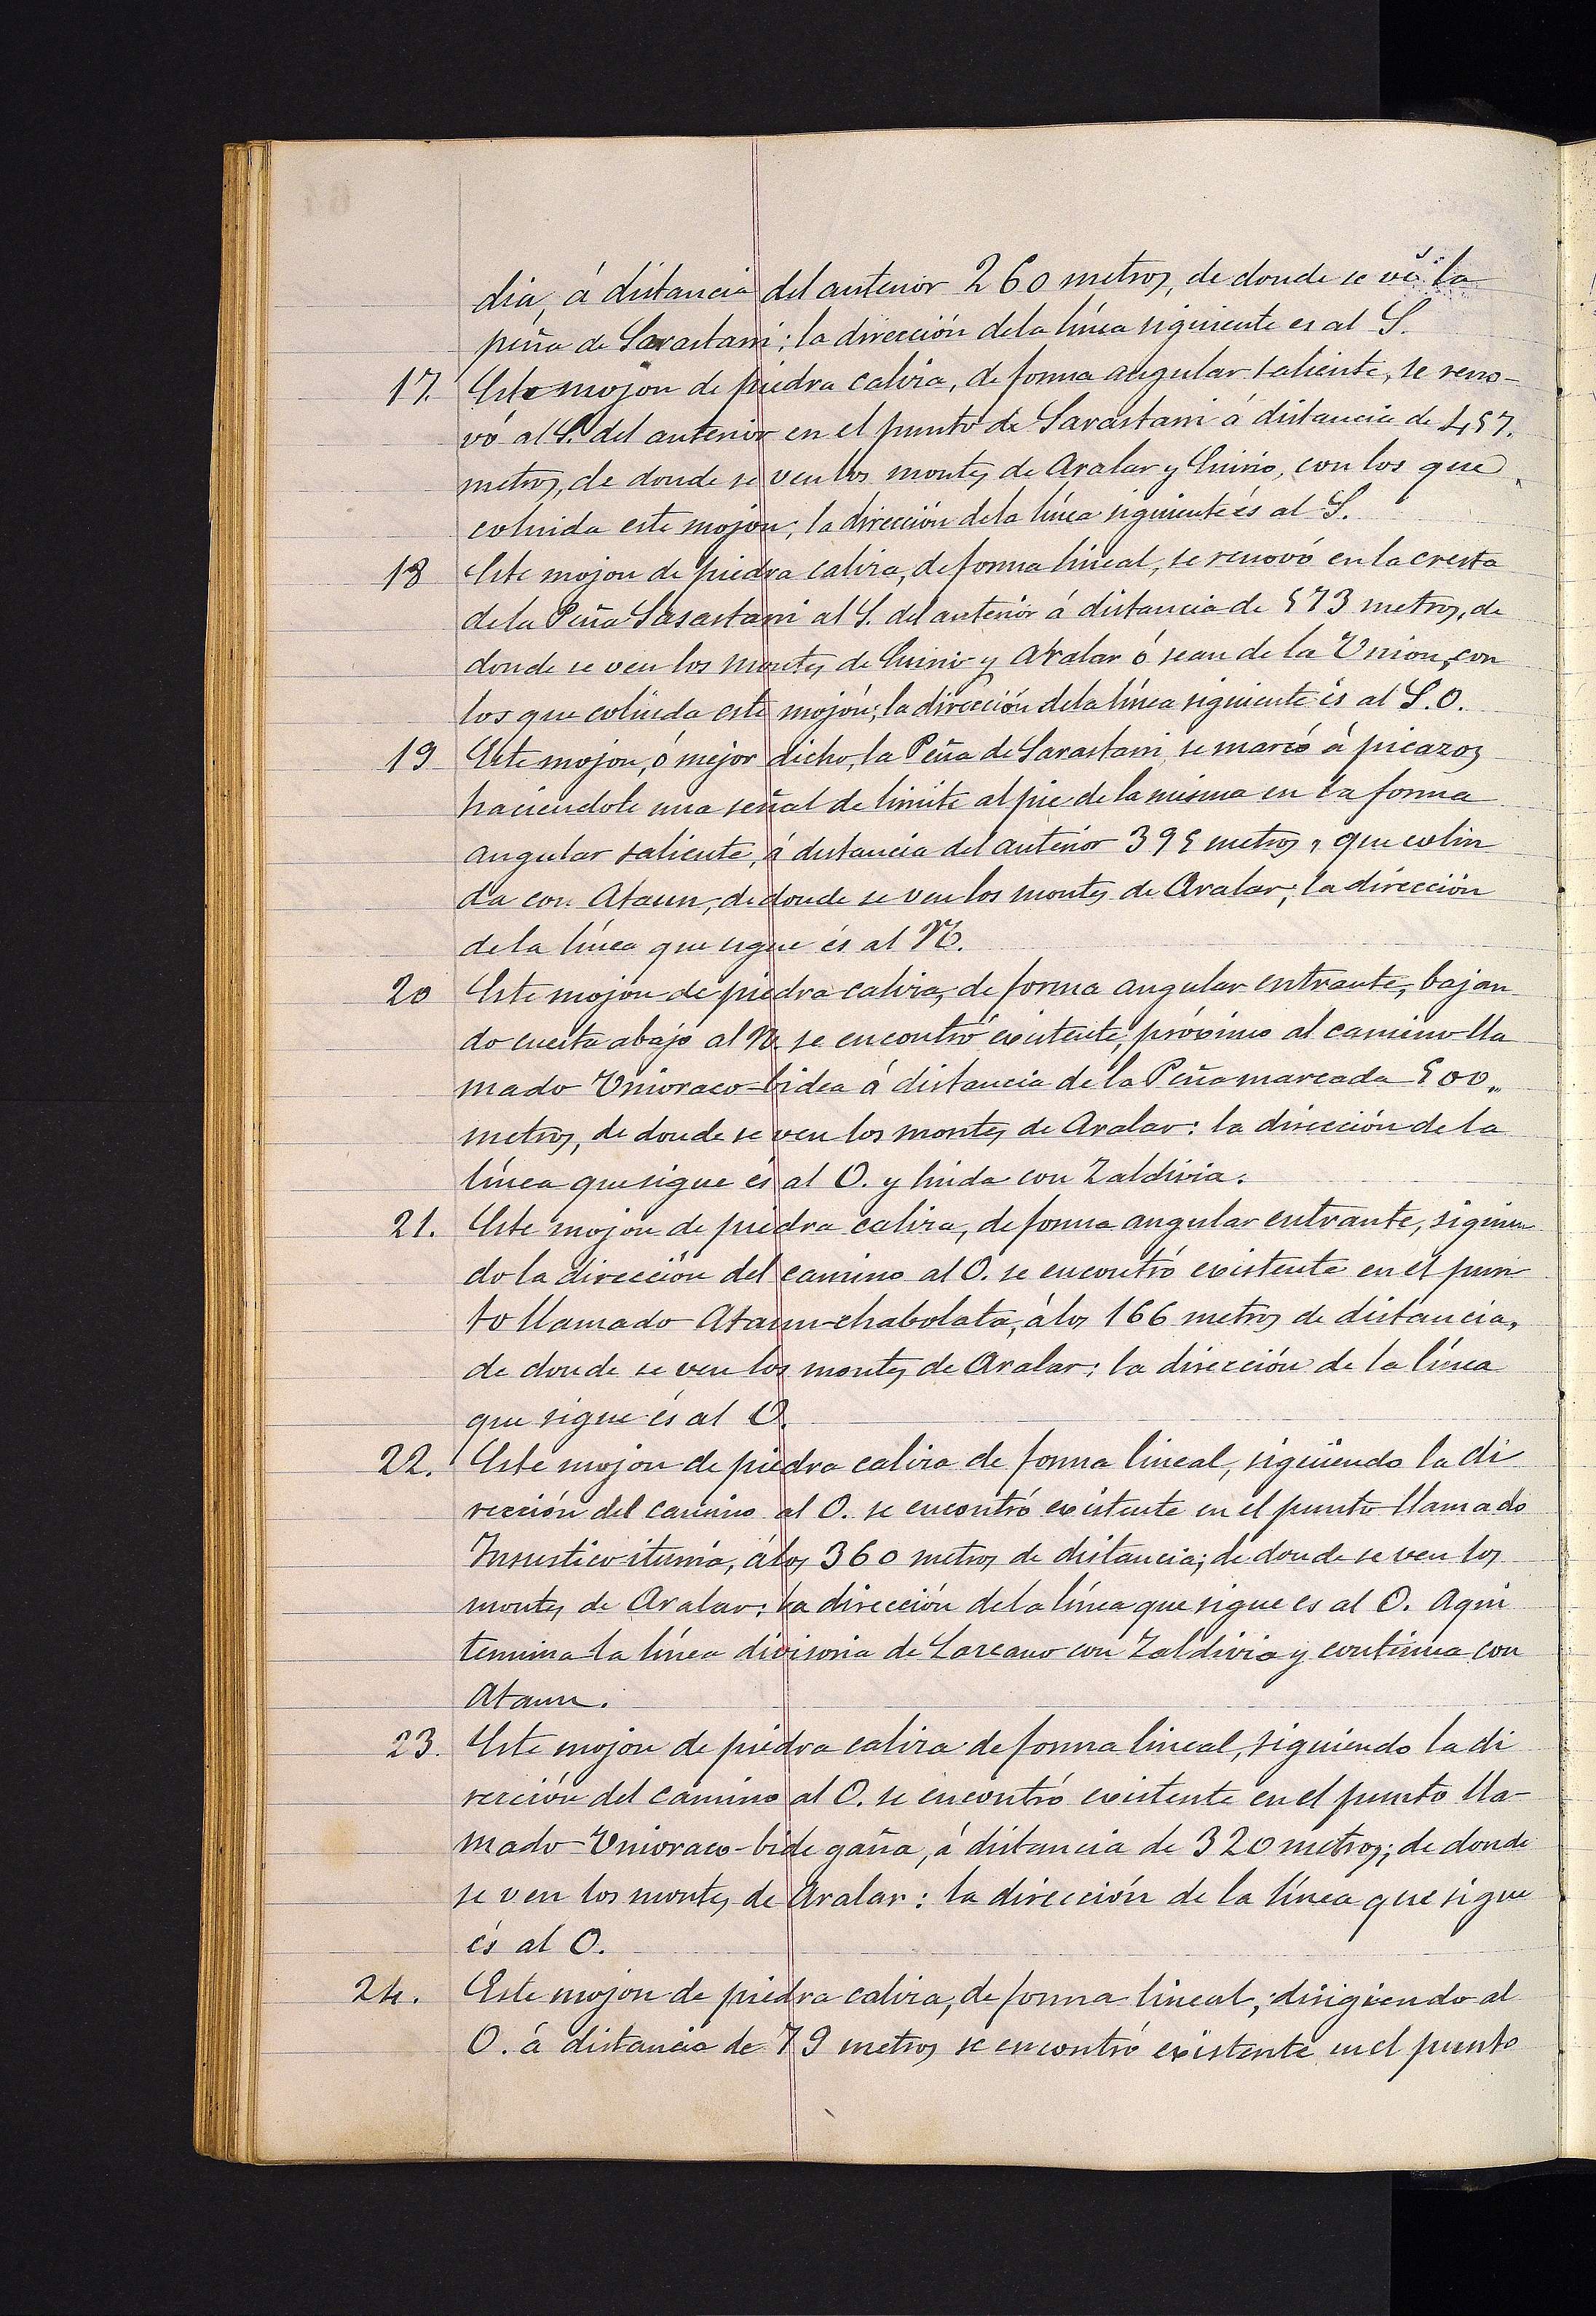 dia, á distancia del anterior 260 metros, de donde se vé la
peña de Sarastarri; la dirección dela línea siguiente es al S.
17. Este mojon de piedra caliza, de forma angular saliente, se reno-
vó al S. del anterior en el punto de Sarastarri á distancia de 457.
metros, de donde se ven los montes de Aralar y Enirio, con los que
colinda este mojon; la dirección dela línea siguiente és al S.
18 Este mojon de piedra caliza, de forma lineal, se renovó en la cresta
dela Peña Sasastarri al S. del anterior á distancia de 573 metros, de
donde se ven los montes de Enirio y Aralar ó sean de la Union, con
los que colinda este mojón; la dirección dela línea siguiente és al S.O.
19 Este mojon, ó mejor dicho, la Peña de Sarastarri, se marcó á picazos
haciendole una señal de limite al pie de la misma en la forma
angular saliente, á distancia del anterior 395 metros, que colin
da con Ataun, de donde se ven los montes de Aralar; la dirección
de la línea que sigue és al N.
20 Este mojon de piedra caliza, de forma angular entrante, bajan
do cuesta abajo al N. se encontró existente, próximo al camino lla
mado Unioraco-bidea á distancia de la Peña marcada 500,,
metros, de donde se ven los montes de Aralar: la dirección de la
línea que sigue és al O. y linda con Zaldivia.
21. Este mojon de piedra caliza, de forma angular entrante, siguien
do la dirección del camino al O. se encontró existente en el pun
to llamado Ataun-chabolata, á los 166 metros de distancia,
de donde se ven los montes de Aralar; la dirección de la línea
que sigue és al O.
22. Este mojon de piedra caliza de forma lineal, siguiendo la di
rección del camino al O. se encontró existente en el punto llamado
Insustico-iturria, á los 360 metros de distancia; de donde se ven los
montes de Aralar: la dirección dela línea que sigue es al O. Aqui
termina la línea divisoria de Lazcano con Zaldivia y continua con
Ataun.
23. Este mojon de piedra caliza de forma lineal, siguiendo la di
rección del camino al O. se encontró existente en el punto lla-
mado Unioraco-bide gaña, á distancia de 320 metros; de donde
se ven los montes de Aralar: la dirección de la línea que sigue
és al O.
24. Este mojon de piedra caliza, de forma lineal, dirigiendo al
O. á distancia de 79 metros se encontró existente en el punto